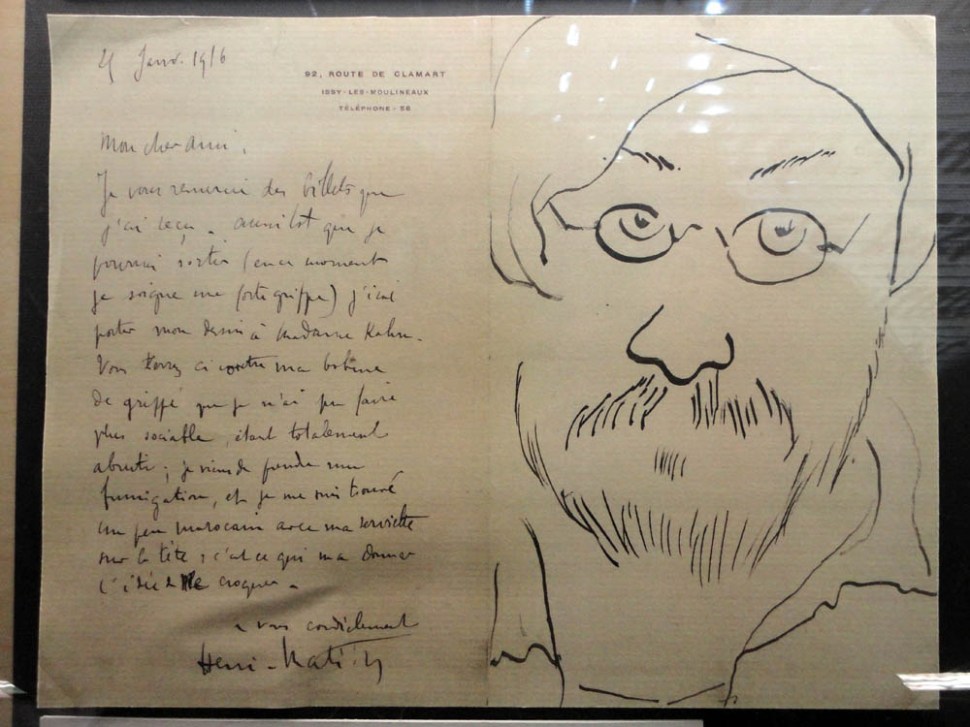 Janv. 1916
92, ROUTE DE CLAMART
ISSY-LES-MOULINEAUX
TÉLÉPHONE : 58
Mon cher ami,
Je vous remercie des billets que
j'ai reçu. aussitôt que je
pourrai sortir (en ce moment
je soigne une forte grippe) j'irai
porter mon dessin à Madame Kahn.
Vous verrez ci contre ma bobine
de grippé que je n'ai pu faire
plus sociable, étant totalement
abruti ; je viens de prendre une
fumigation, et je me suis trouvé
un peu marocain avec ma serviette
sur la tête ; c'est ce qui m'a donné
l'idée de me croquer.
a vous cordialement
Henri-Matisse